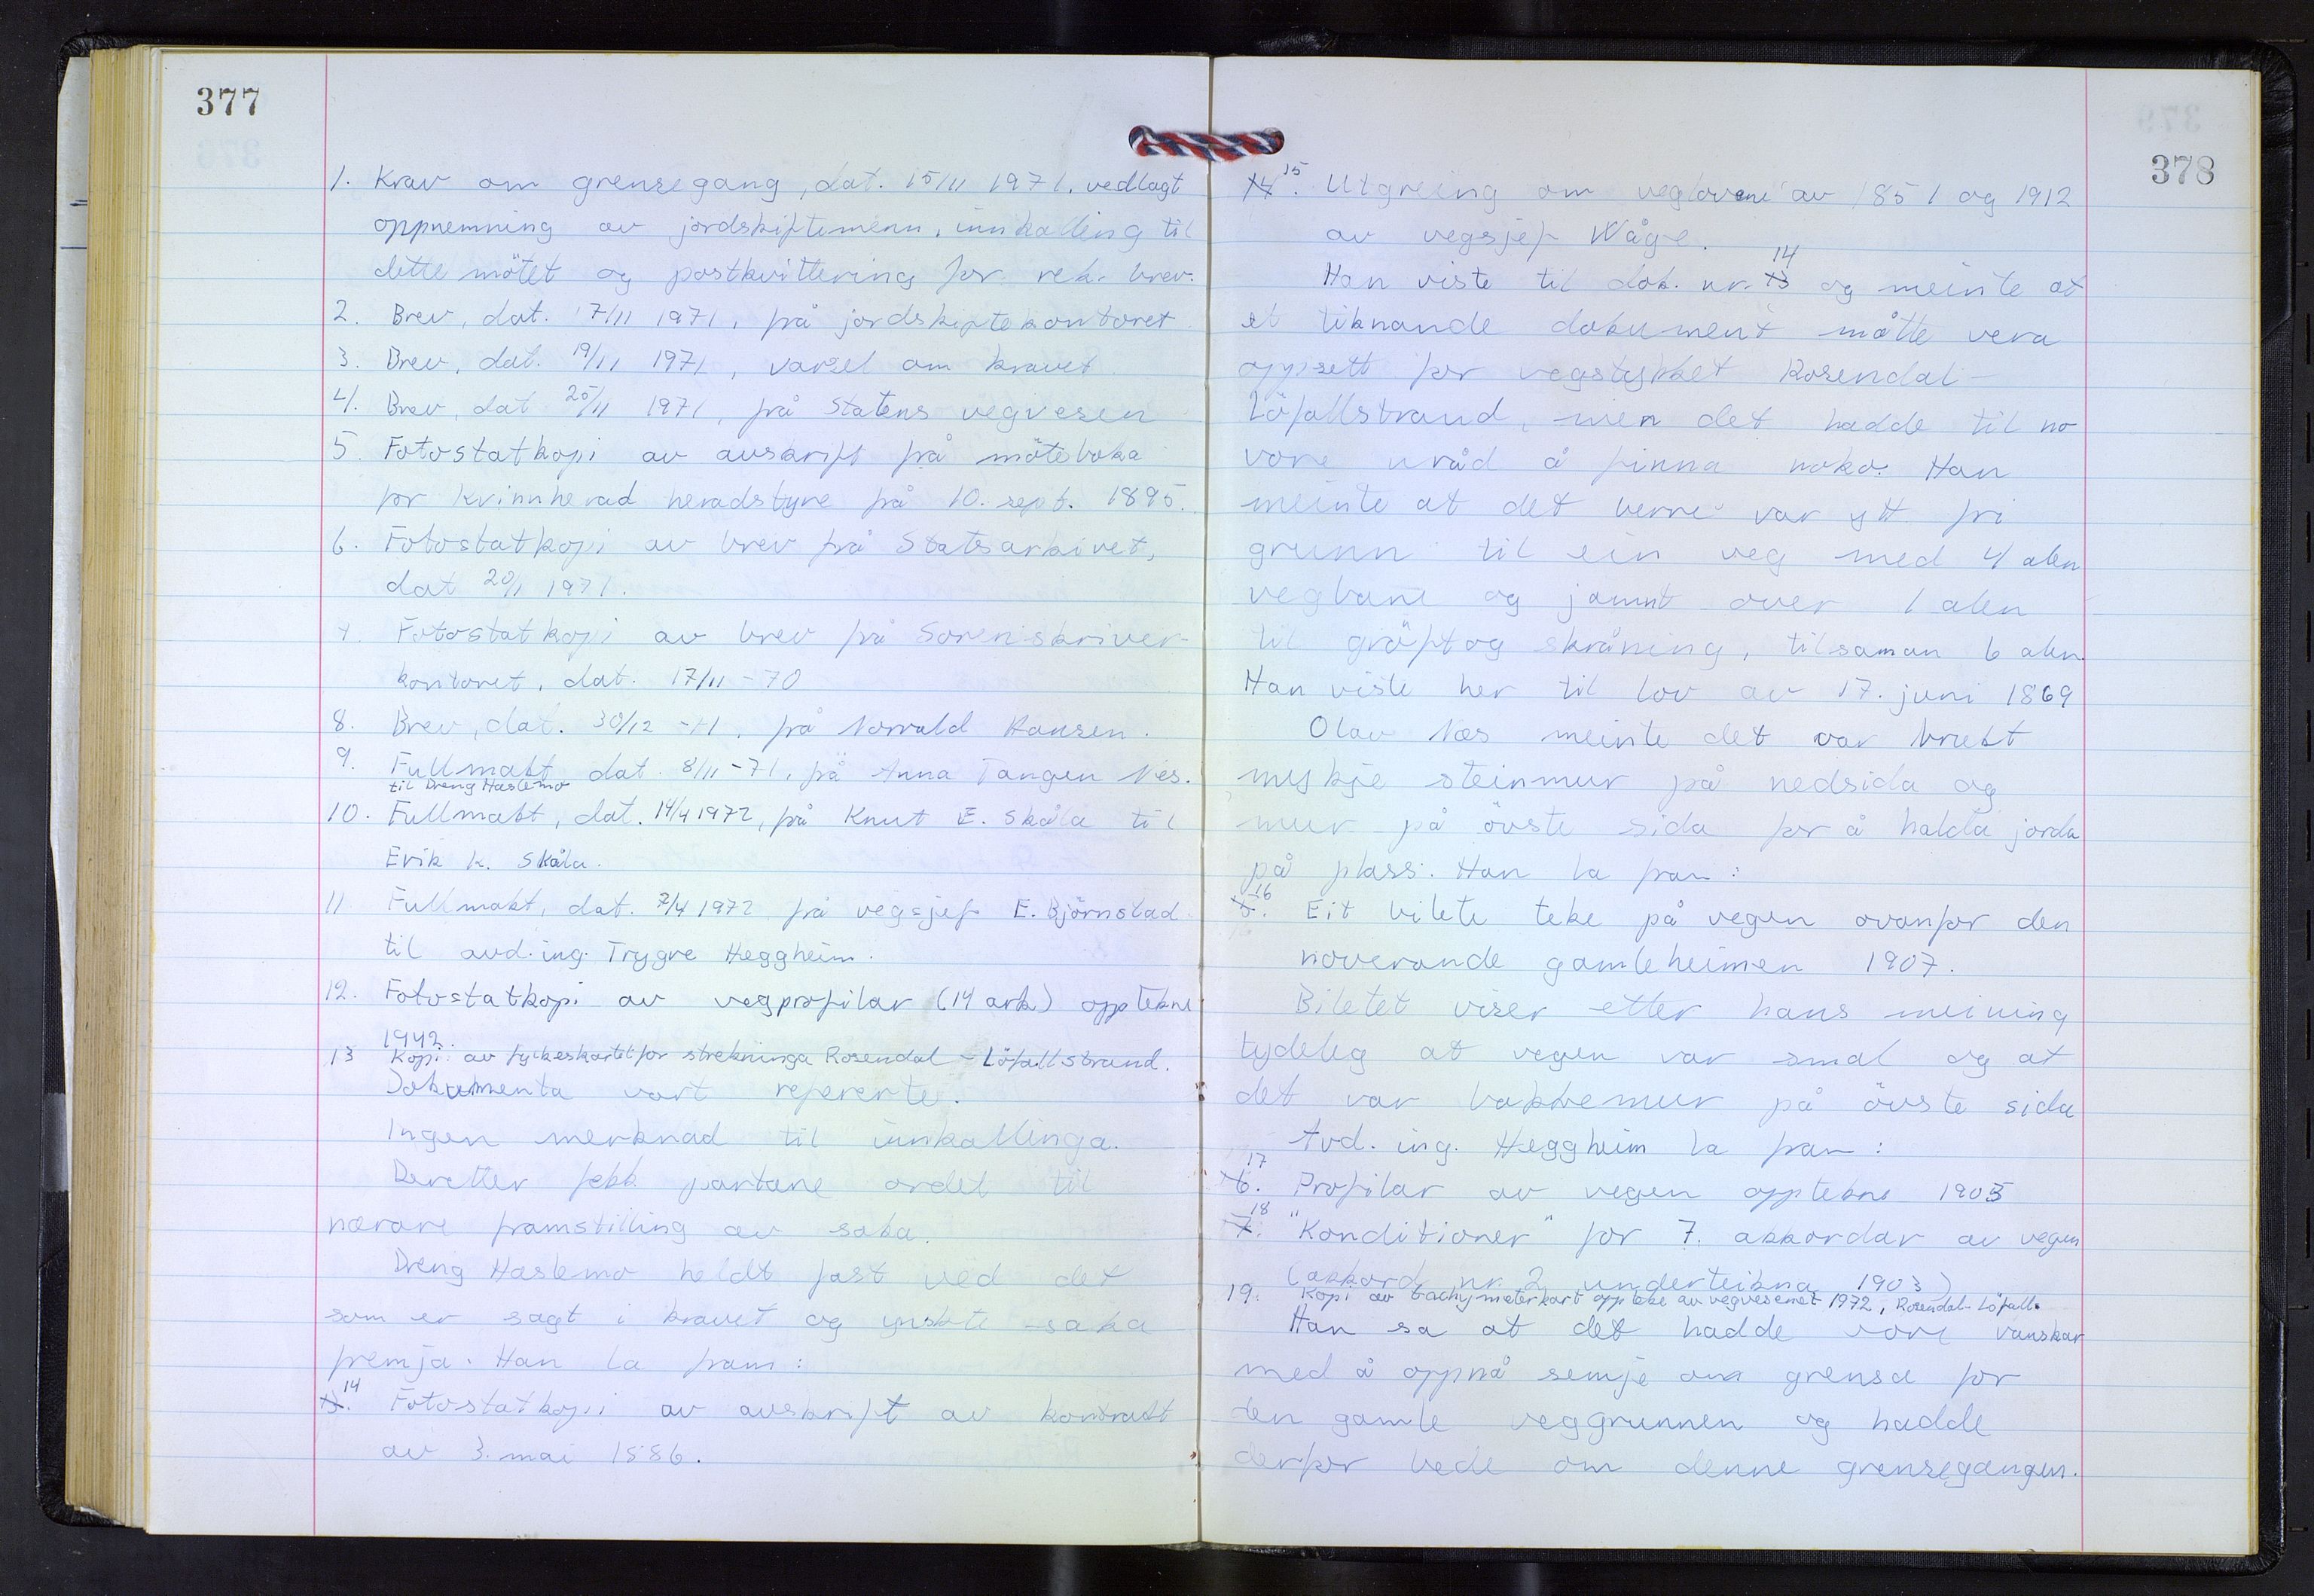 377
1. Krav om grensegang, dat. 15/11 1971, vedlagt
oppnemning av jordskiftemenn, innkalling til
dette mötet og postkvittering for rek. brev.
2. Brev, dat. 17/11 1971, frå jordskiftekontoret
3. Brev, dat. 19/11 1971, varsel om kravet
4. Brev, dat 25/11 1971, frå Statens vegvesen
5. Fotostatkopi av avskrift frå möteboka
for Kvinnherad heradstyre frå 10. sept. 1895.
6. Fotostatkopi av brev frå Statsarkivet,
dat 20/1 1971.
7. Fotostatkopi av brev frå Sorenskriver-
kontoret, dat. 17/11 - 70
8. Brev, dat. 30/12 -71, frå Norvald Hansen.
9. Fullmakt dat. 8/11 - 71, frå Anna Tangen Nes.
til Dreng Haslemo
10. Fullmakt, dat. 14/4 1972, frå Knut E. Skåla til
Erik K. Skåla.
11 Fullmakt, dat. 7/4 1972 frå vegsjef E. Björnstad
til avd.ing. Trygve Heggheim.
12. Fotostatkopi av vegprofilar (14 ark) opptekne
1942.
13 Kopi av fylkeskartet for strekninga Rosendal - Löfallstrand.
Dokumenta vart refererte.
Ingen merknad til innkallinga.
Deretter fekk partane ordet til
nærare framstilling av saka.
Dreng Haslemo heldt fast ved det
som er sagt i kravet og ynskte saka
fremja. Han la fram:
13. 14 Fotostatkopi av avskrift av kontrakt
av 3. mai 1886.
378
14. 15 Utgreiing om veglovene av 1851 og 1912
av vegsjef Wåge.
Han viste til dok. nr. 13 14 og meinte at
et liknande dokument måtte vera
oppsett for vegstykket Rosendal -
Löfallstrand, men det hadde til no
vore uråd å finna noko. Han
meinte at det berre var ytt fri
grunn til ein veg med 4 alen
vegbane og jamnt over 1 alen
til gröft og skråning, tilsaman 6 alen.
Han viste her til lov av 17. juni 1869
Olav Næs meinte det var brukt
mykje steinmur på nedsida og
mur på övste sida for å halda jorda
på plass. Han la fram:
5. 16 Eit bilete teke på vegen ovanfor den
noverande gamleheimen 1907.
Biletet viser etter hans meining
tydeleg at vegen var smal og at
det var bakkemur på övste sida
Avd. ing. Heggheim la fram:
6. 17 Profilar av vegen opptekne 1905
7. 18 "Konditioner" for 7. akkordar av vegen
(akkord nr. 2 underteikna 1903)
19. Kopi av tachymeterkart oppteke av vegvesenet 1972, Rosendal - Löfall.
Han sa at det hadde vore vanskar
med å oppnå semje om grensa for
den gamle veggrunnen og hadde
derfor bede om denne grensegangen.